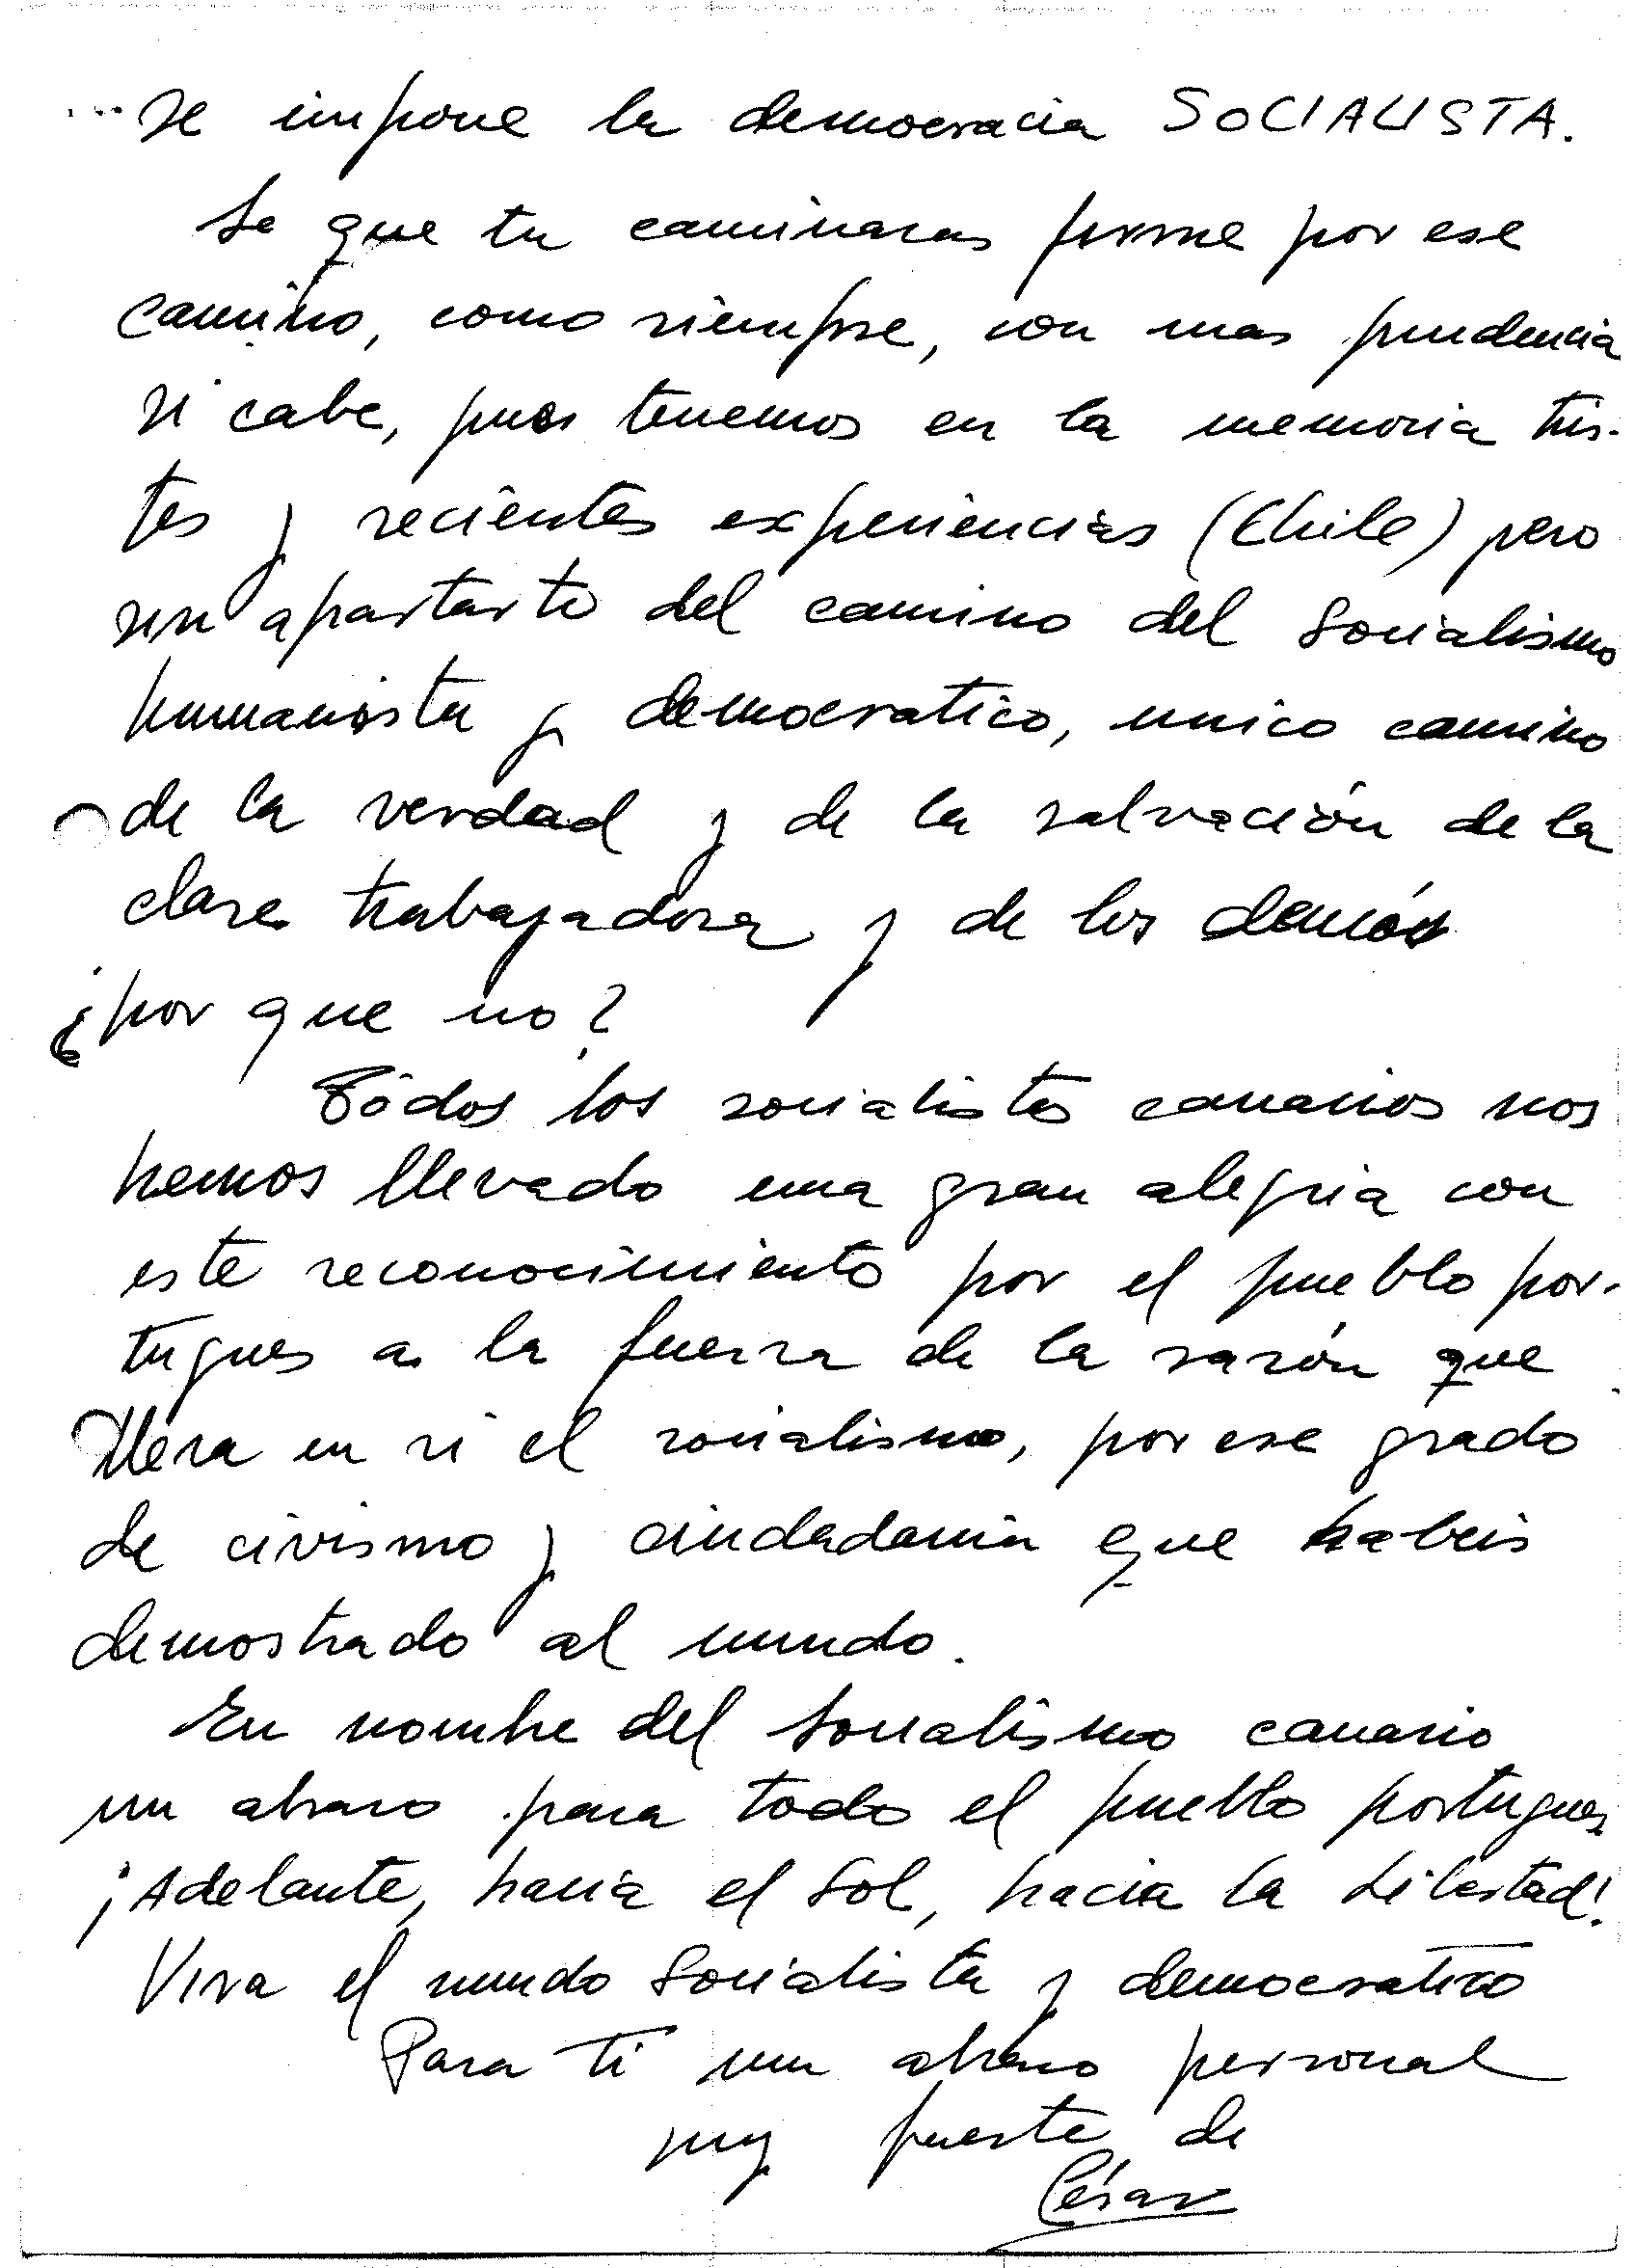 ... se impone la democracia SOCIALISTA.
Se que tu caminaras firme por ese
camino, como siempre, con mas prudencia
si cabe, pues tenemos en la memoria tris-
tes y recientes experiencias (Chile) pero
sin apartarte del camino del Socialismo
humanista y democratico, unico camino
de la verdad y de la salvación de la
clase trabajadora y de los demás
¿por que no?
Todos los socialistas canarios nos
hemos llevado una gran alegria con
este reconocimiento por el pueblo por-
tugues a la fuerza de la razón que
lleva en si el socialismo, por ese grado
de civismo y ciudadania que habeis
demostrado al mundo.
En nombre del Socialismo canario
un abrazo para todo el pueblo portugues
¡Adelante, hacia el Sol, hacia la Libertad!
Viva el mundo Socialista y democratico
Para ti un abrazo personal
muy fuerte de
César